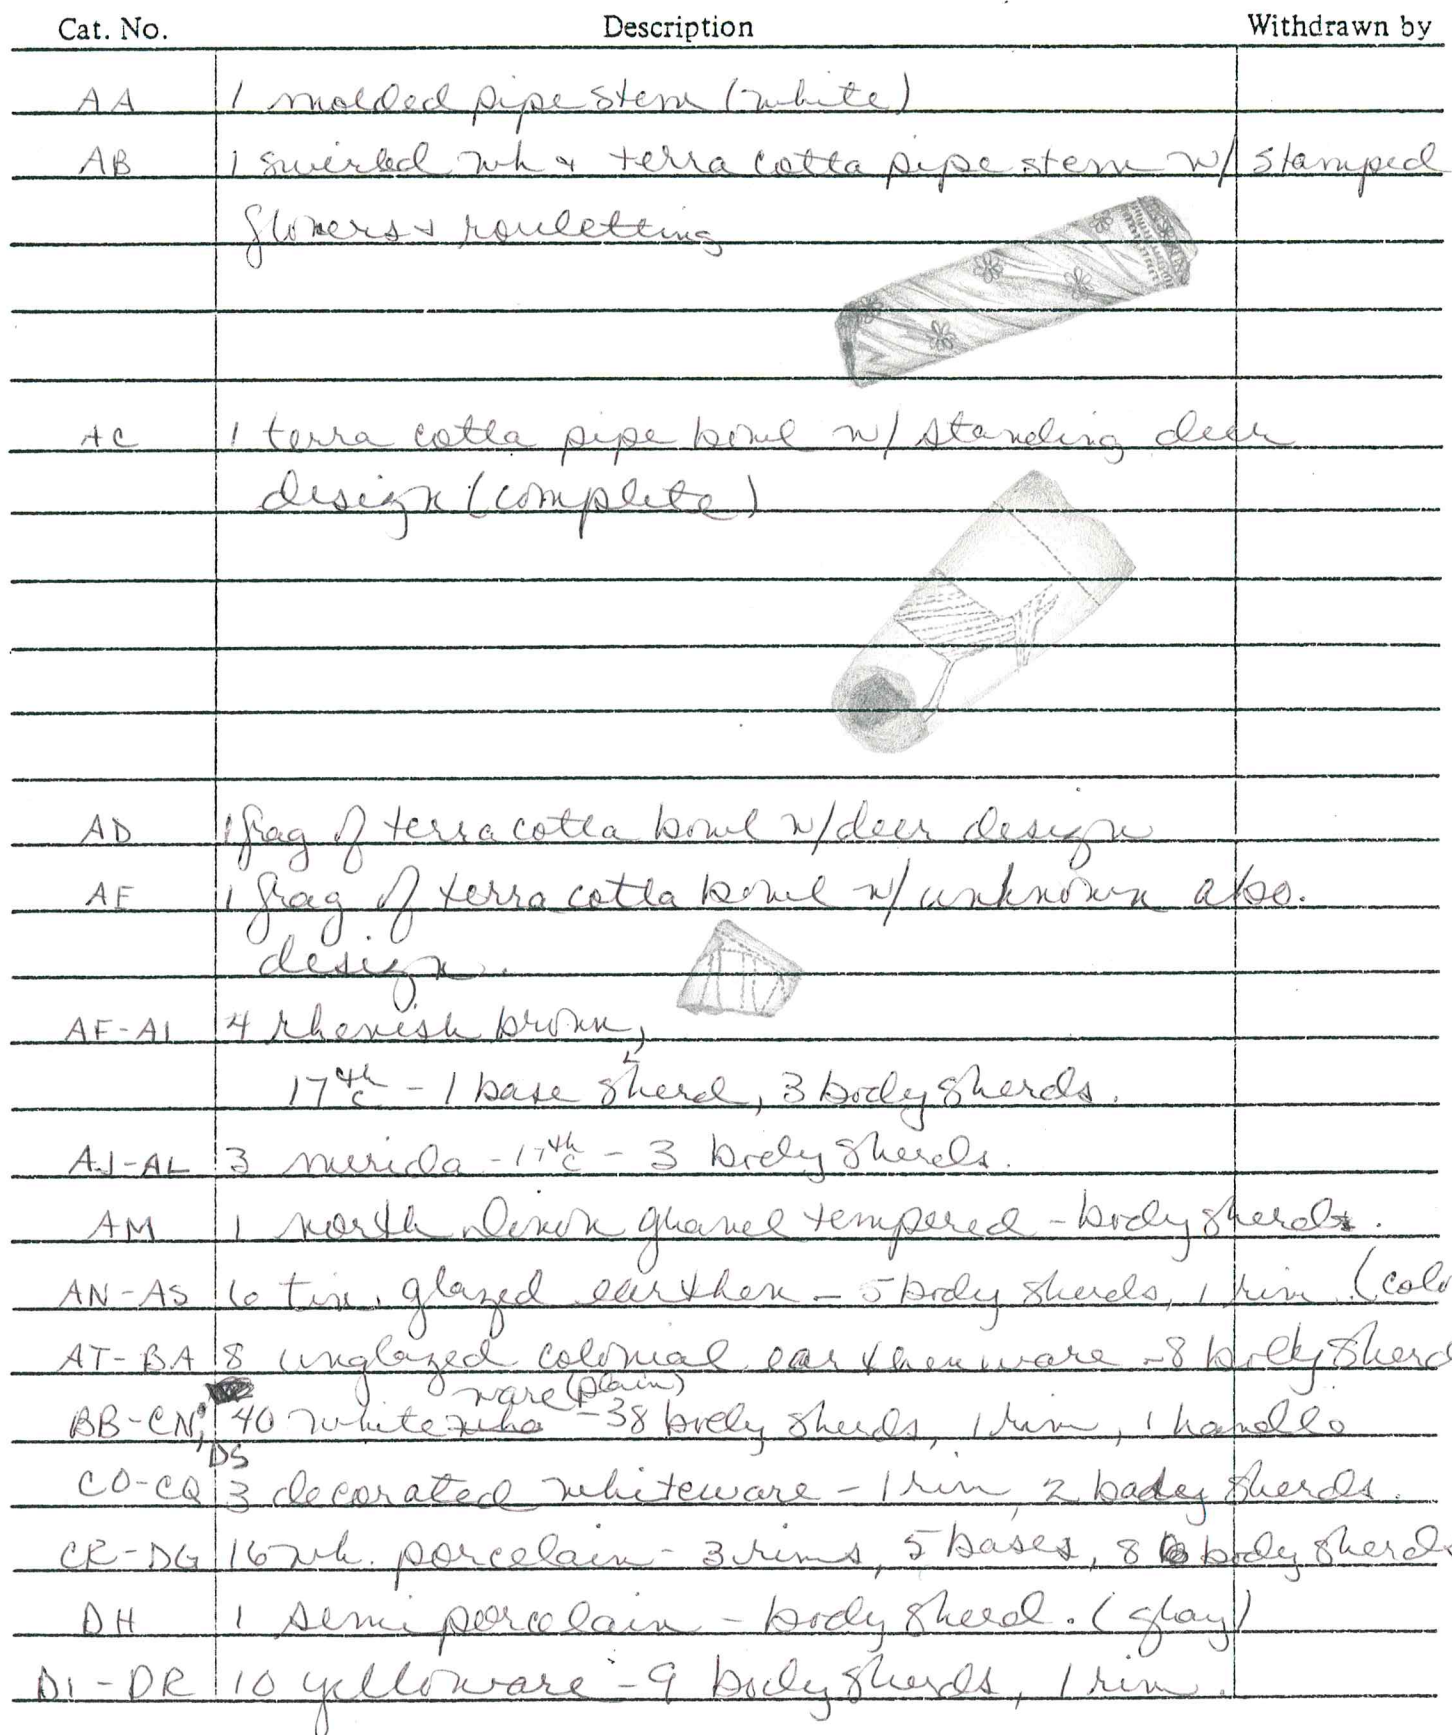 Cat. No. Description Withdrawn by
AA 1 molded pipe stem (white)
AB 1 swirled wh & terra cotta pipe stem w/ stamped
flowers & rouletting
AC 1 terra cotta pipe bowl w/ standing deer
design (complete)
AD 1 frag of terra cotta bowl w/ deer design
AE 1 frag of terra cotta bowl w/ unknown abo.
design.
AF-AI 4 rhenish brown,
17th c - 1 base sherd, 3 body sherds.
AJ-AL 3 merida - 17th c - 3 body sherds.
AM 1 north Devon gravel tempered - body sherd.
AN-AS 6 tin. glazed earthen - 5 body sherds, 1 rim (colo
AT-BA 8 unglazed colonial earthenware - 8 body sherd
ware (plain)
BB-CN; 40 white - 38 body sherds, 1 rim, 1 handle
DS
CO-CQ 3 decorated whiteware - 1 rim, 2 body sherds.
CR-DG 16 wh. porcelain - 3 rims, 5 bases, 8 body sherds
DH 1 semi porcelain - body sherd. (gray)
DI-DR 10 yelloware - 9 body sherds, 1 rim.